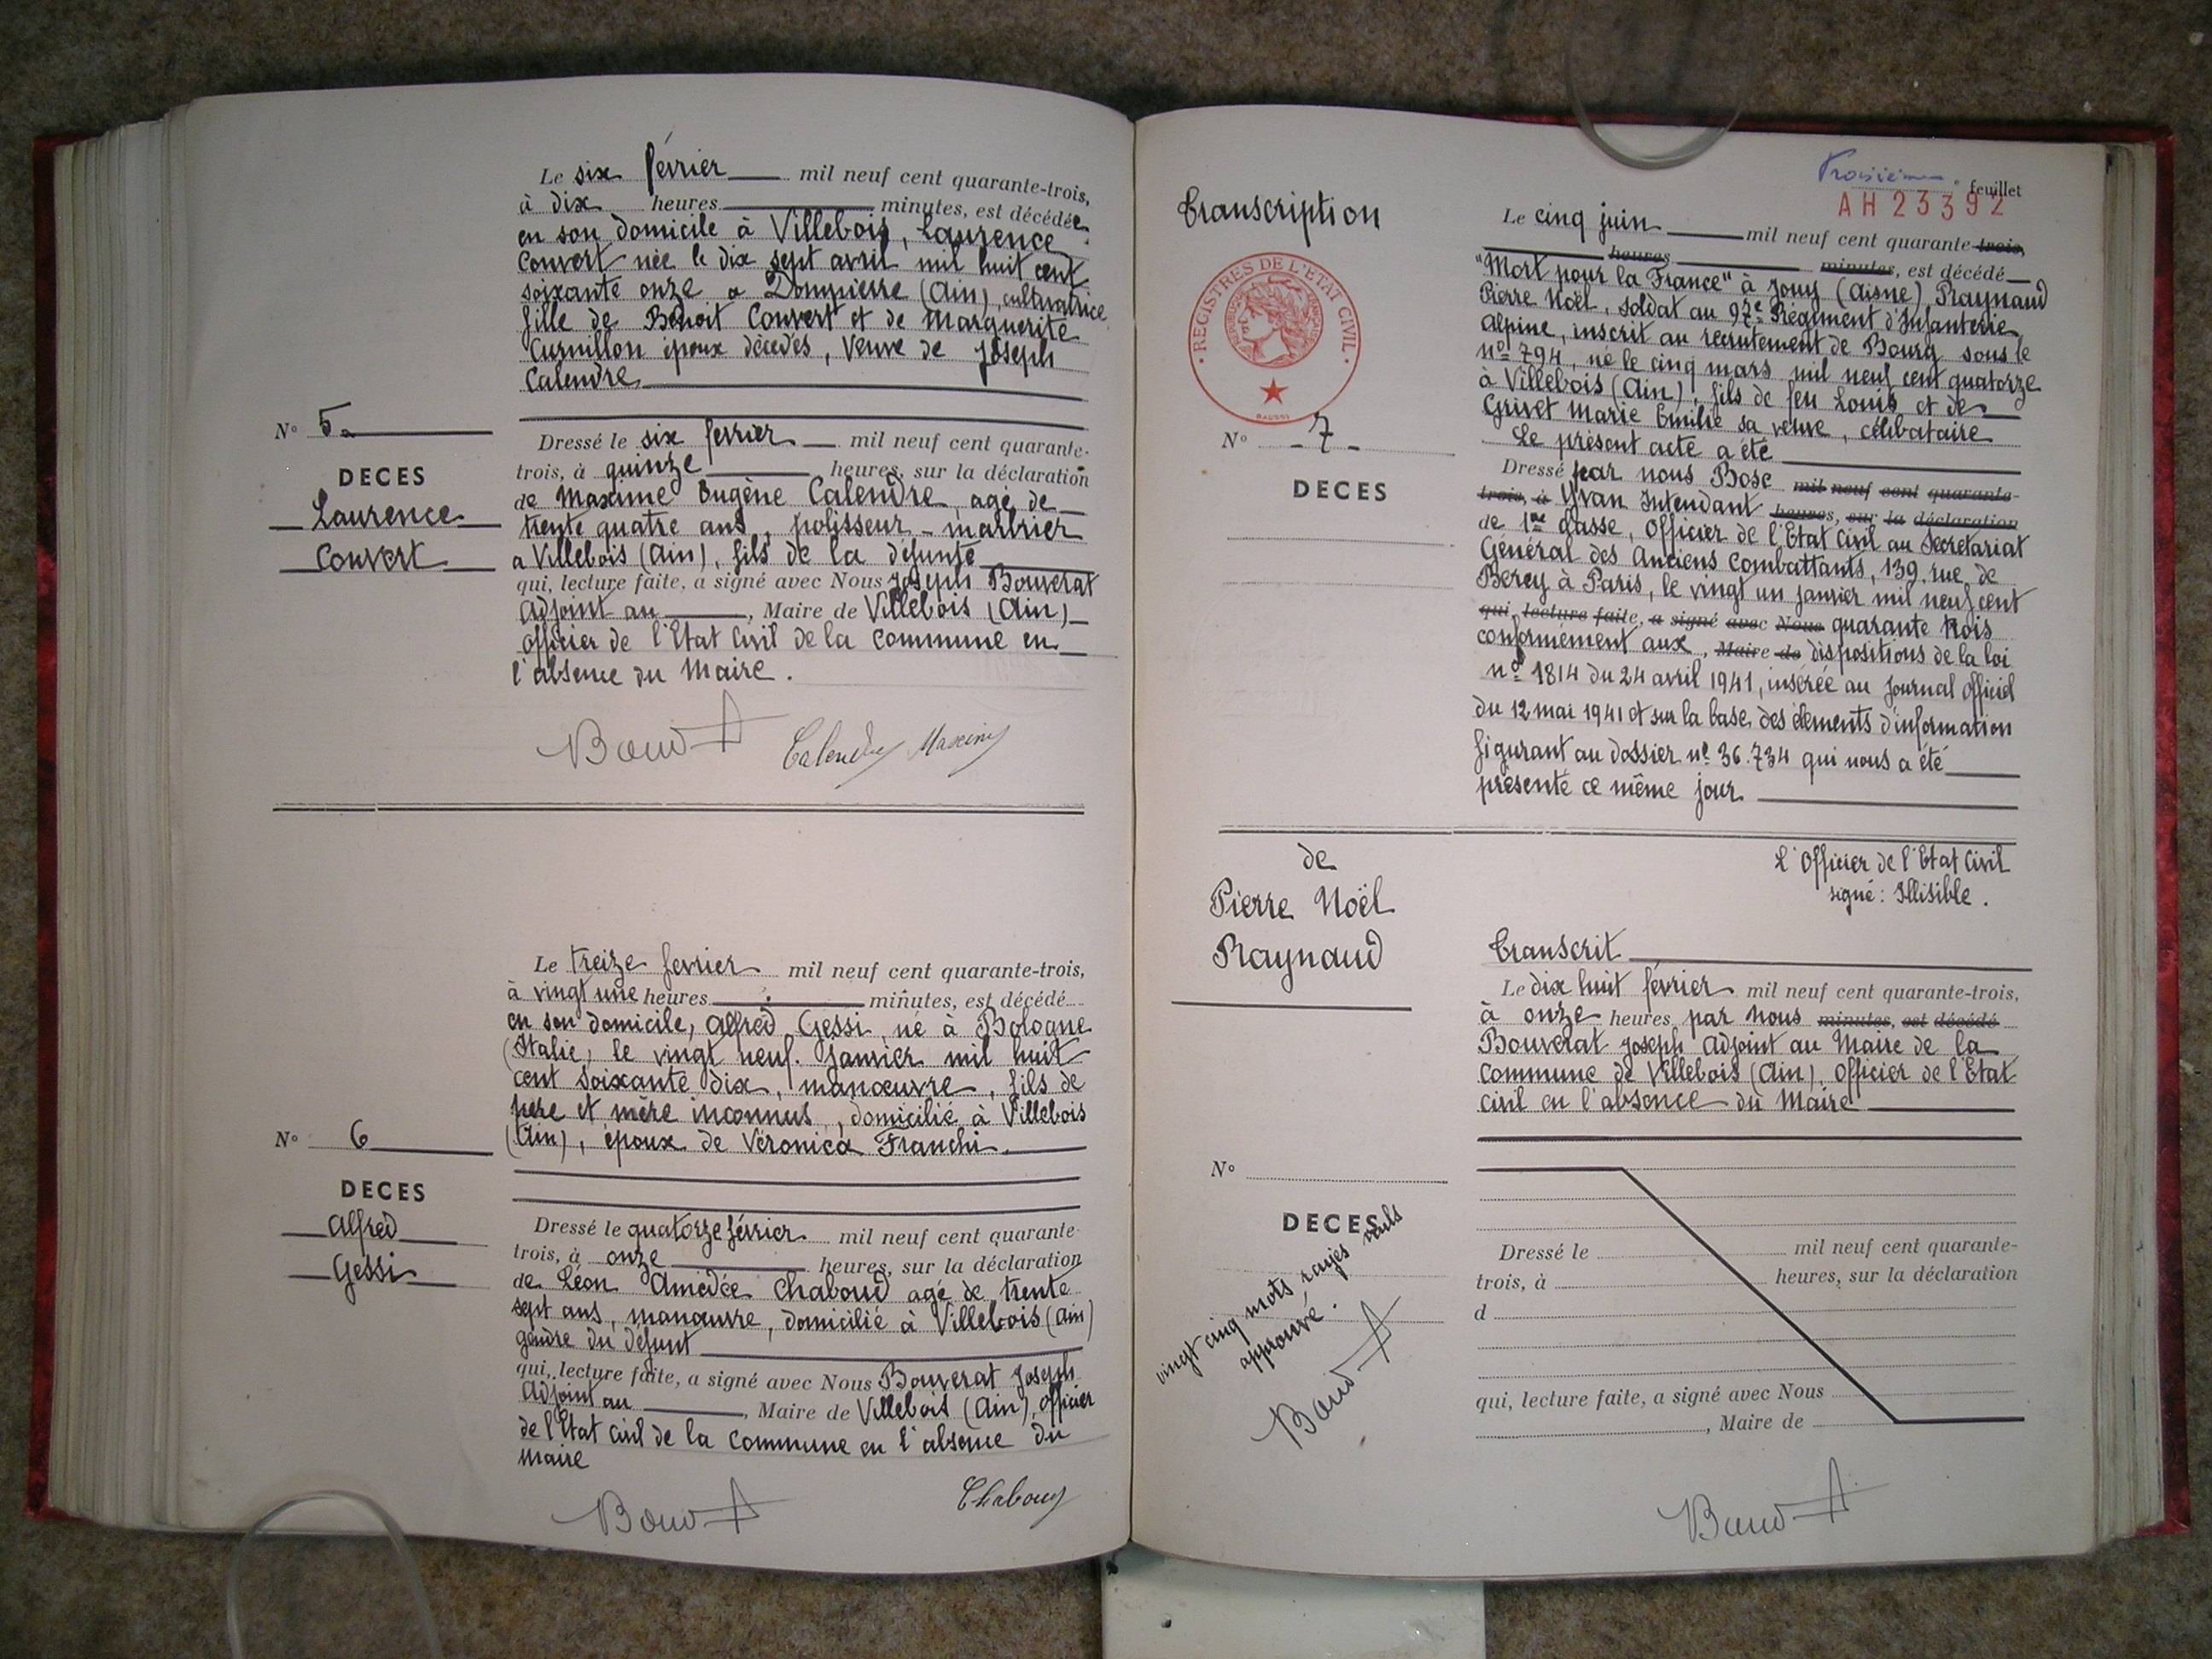 Le six février mil neuf cent quarante-trois,
à dix heures minutes, est décédée
en son domicile à Villebois, Laurence
Convert née le dix sept avril mil huit cent
soixante onze a Dompierre (Ain), cultivatrice
fille de Benoit Convert et de Marguerite
Curnillon époux décédés, Veuve de Joseph
Calendre
Nº 5
DECES
Laurence
Convert
Dressé le six fevrier mil neuf cent quarante-
trois, à quinze heures, sur la déclaration
de Maxime Eugène Calendre, agé de
trente quatre ans, polisseur-marbrier
a Villebois (Ain), fils de la défunte
qui, lecture faite, a signé avec Nous Joseph Bouverat
Adjoint au , Maire de Villebois (Ain)
officier de l'Etat Civil de la commune en
l'absence du Maire.
Calendre Maxime
Le treize fevrier mil neuf cent quarante-trois,
à vingt une heures minutes, est décédé
en son domicile, Alfred Gessi, né à Bologne
(Italie, le vingt neuf Janvier mil huit
cent soixante dix, manœuvre, fils de
père et mère inconnus, domicilié à Villebois
(Ain), époux de Véronica Franchi.
Nº 6
DECES
Alfred
Gessi
Dressé le quatorze février mil neuf cent quarante-
trois, à onze heures, sur la déclaration
de Léon Amédée Chaboud agé de trente
sept ans, manœuvre, domicilié à Villebois (Ain)
gendre du défunt
qui, lecture faite, a signé avec Nous Bouverat Joseph
Adjoint au , Maire de Villebois (Ain), officier
de l'Etat Civil de la commune en l'absence du
Maire
Troisième feuillet
AH 23392
Transcription
REGISTRES DE L'ÉTAT CIVIL
Nº 7
DECES
Le cinq juin mil neuf cent quarante trois,
heures minutes, est décédé
"Mort pour la France" à Jouy (Aisne) Raynaud
Pierre Noël, soldat au 97e Régiment d'Infanterie
Alpine, inscrit au recrutement de Bourg sous le
nº 794, né le cinq mars mil neuf cent quatorze
à Villebois (Ain), fils de feu Louis et de
Grivet Marie Emilie sa veuve, célibataire
Le présent acte a été
Dressé par nous Bosc mil neuf cent quarante-
trois, à Yvan Intendant heures, sur la déclaration
de 1re classe, Officier de l'Etat Civil au Secrétariat
Général des Anciens Combattants, 139, rue de
Bercy à Paris, le vingt un janvier mil neuf cent
qui, lecture faite, a signé avec Nous quarante trois
conformement aux , Maire de dispositions de la loi
nº 1814 du 24 avril 1941, insérée au Journal Officiel
du 12 mai 1941 et sur la base des éléments d'information
figurant au dossier nº 36.734 qui nous a été
présenté ce même jour.
de
Pierre Noël
Raynaud
L'Officier de l'Etat Civil
signé: Illisible.
Transcrit
Le dix huit février mil neuf cent quarante-trois,
à onze heures par nous minutes, est décédé
Bouverat Joseph Adjoint au Maire de la
commune de Villebois (Ain), officier de l'Etat
civil en l'absence du Maire
Nº
DECES
vingt cinq mots rayés nuls
approuvé.
Dressé le mil neuf cent quarante-
trois, à heures, sur la déclaration
d
qui, lecture faite, a signé avec Nous
, Maire de